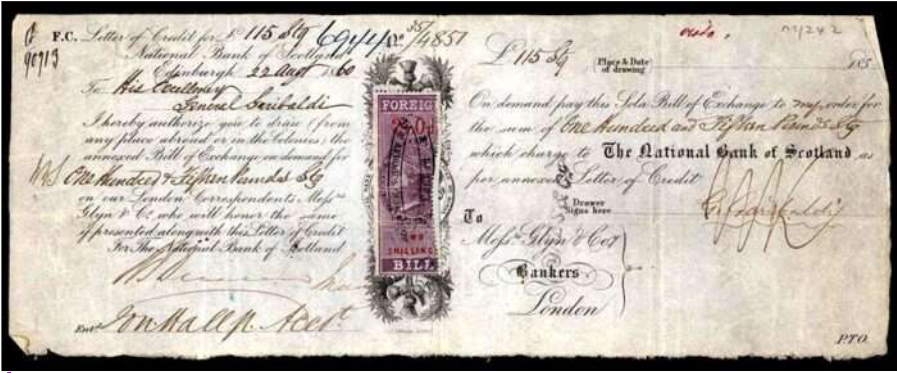 F.C. Letter of Credit for £ 115 Stg
90713
National Bank of Scotland
Edinburgh 22 Augt 1860
To His Excellency
General Garibaldi
I hereby authorize you to draw (from
any place abroad or in the Colonies) the
annexed Bill of Exchange on demand for
One Hundred & Fifteen Pounds Stg
on our London Correspondents Messrs
Glyn & Co. who will honor the same
if presented along with this Letter of Credit
For The National Bank of Scotland
Entd.
No. 35/4851
FOREIG
SHILLING
BILL
£ 115 Stg
Place & Date
of drawing
185
On demand pay this Sola Bill of Exchange to my order for
the sum of One Hundred and Fifteen Pounds Stg
which charge to The National Bank of Scotland as
per annexed Letter of Credit
Drawer
Signs here
G. Garibaldi
To
Messrs. Glyn & Co.
Bankers
London
P.T.O.